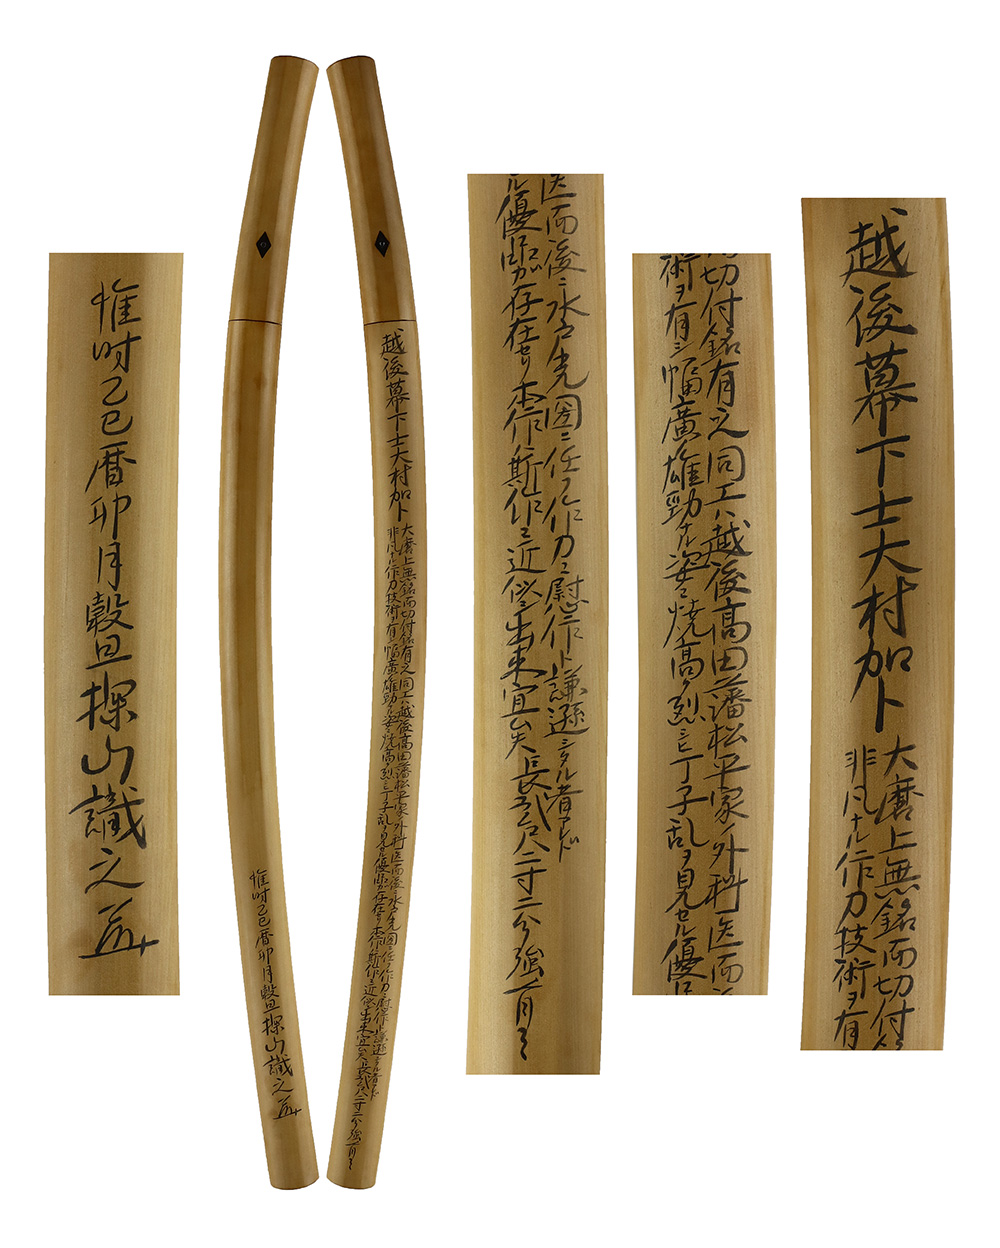 惟時乙巳暦卯月穀旦探山識之
惟時乙巳暦卯月穀旦探山識之
越後幕下士大村加卜
大磨上無銘而切付銘有之同工ハ越後高田藩松平家ノ外科医而後ニ水戸光圀ニ任ヘ作刀ニ慰作ト謙遜シタル者アレド
非凡ナル作刀技術ヲ有シ幅廣ク雄勁ナル姿ニ焼高ク烈シキ丁子乱ヲ見セル優品ガ存在セリ本作ハ斯作ニ近似シ出来宜矣長弐尺二寸二分強有之
医而後ニ水戸光圀ニ任ヘ作刀ニ慰作ト謙遜シタル者アレド
ル優品ガ存在セリ本作ハ斯作ニ近似シ出来宜矣長弐尺二寸二分強有之
切付銘有之同工ハ越後高田藩松平家ノ外科医而
術ヲ有シ幅廣ク雄勁ナル姿ニ焼高ク烈シキ丁子乱ヲ見セル優
越後幕下士大村加卜
大磨上無銘而切付
非凡ナル作刀技術ヲ有